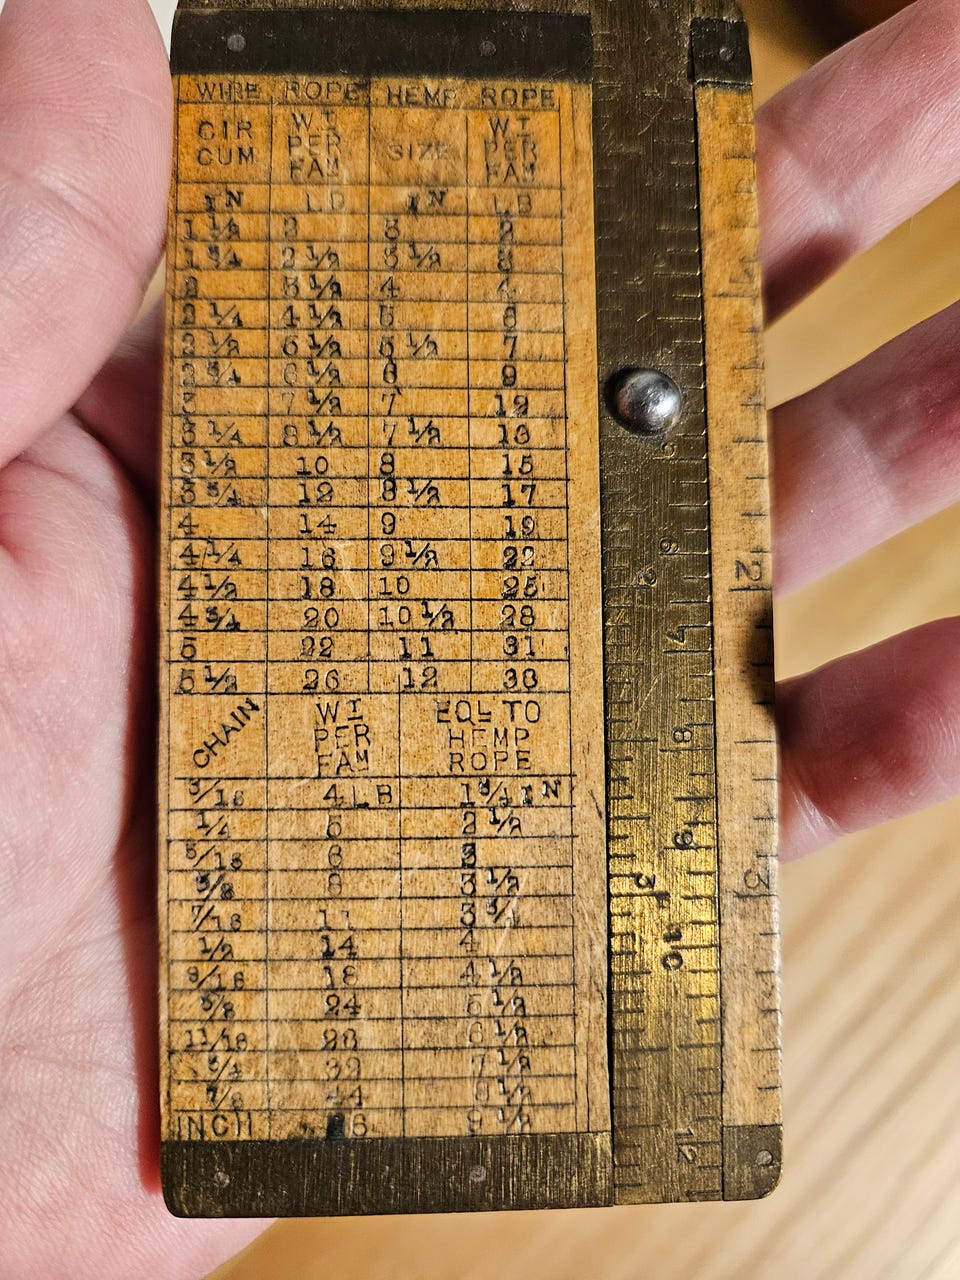 WIRE ROPE HEMP ROPE
CIR CUM WT PER FAM SIZE WT PER FAM
IN LB IN LB
1 1/2 2 3 2
1 3/4 2 1/2 3 1/2 3
2 3 1/2 4 4
2 1/4 4 1/2 5 6
2 1/2 5 1/2 5 1/2 7
2 3/4 6 1/2 6 9
3 7 1/2 7 12
3 1/4 8 1/2 7 1/2 13
3 1/2 10 8 15
3 3/4 12 8 1/2 17
4 14 9 19
4 1/4 16 9 1/2 22
4 1/2 18 10 25
4 3/4 20 10 1/2 28
5 22 11 31
5 1/2 26 12 38
CHAIN WT PER FAM EQL TO HEMP ROPE
3/16 4 LB 1 3/4 IN
1/4 5 2 1/2
5/16 6 3
3/8 8 3 1/2
7/16 11 3 3/4
1/2 14 4
9/16 18 4 1/2
5/8 24 5 1/2
11/16 28 6 1/2
3/4 32 7 1/2
7/8 44 8 1/2
INCH 56 9 1/2
5
6
2
7
8
9
3
10
12
2
3